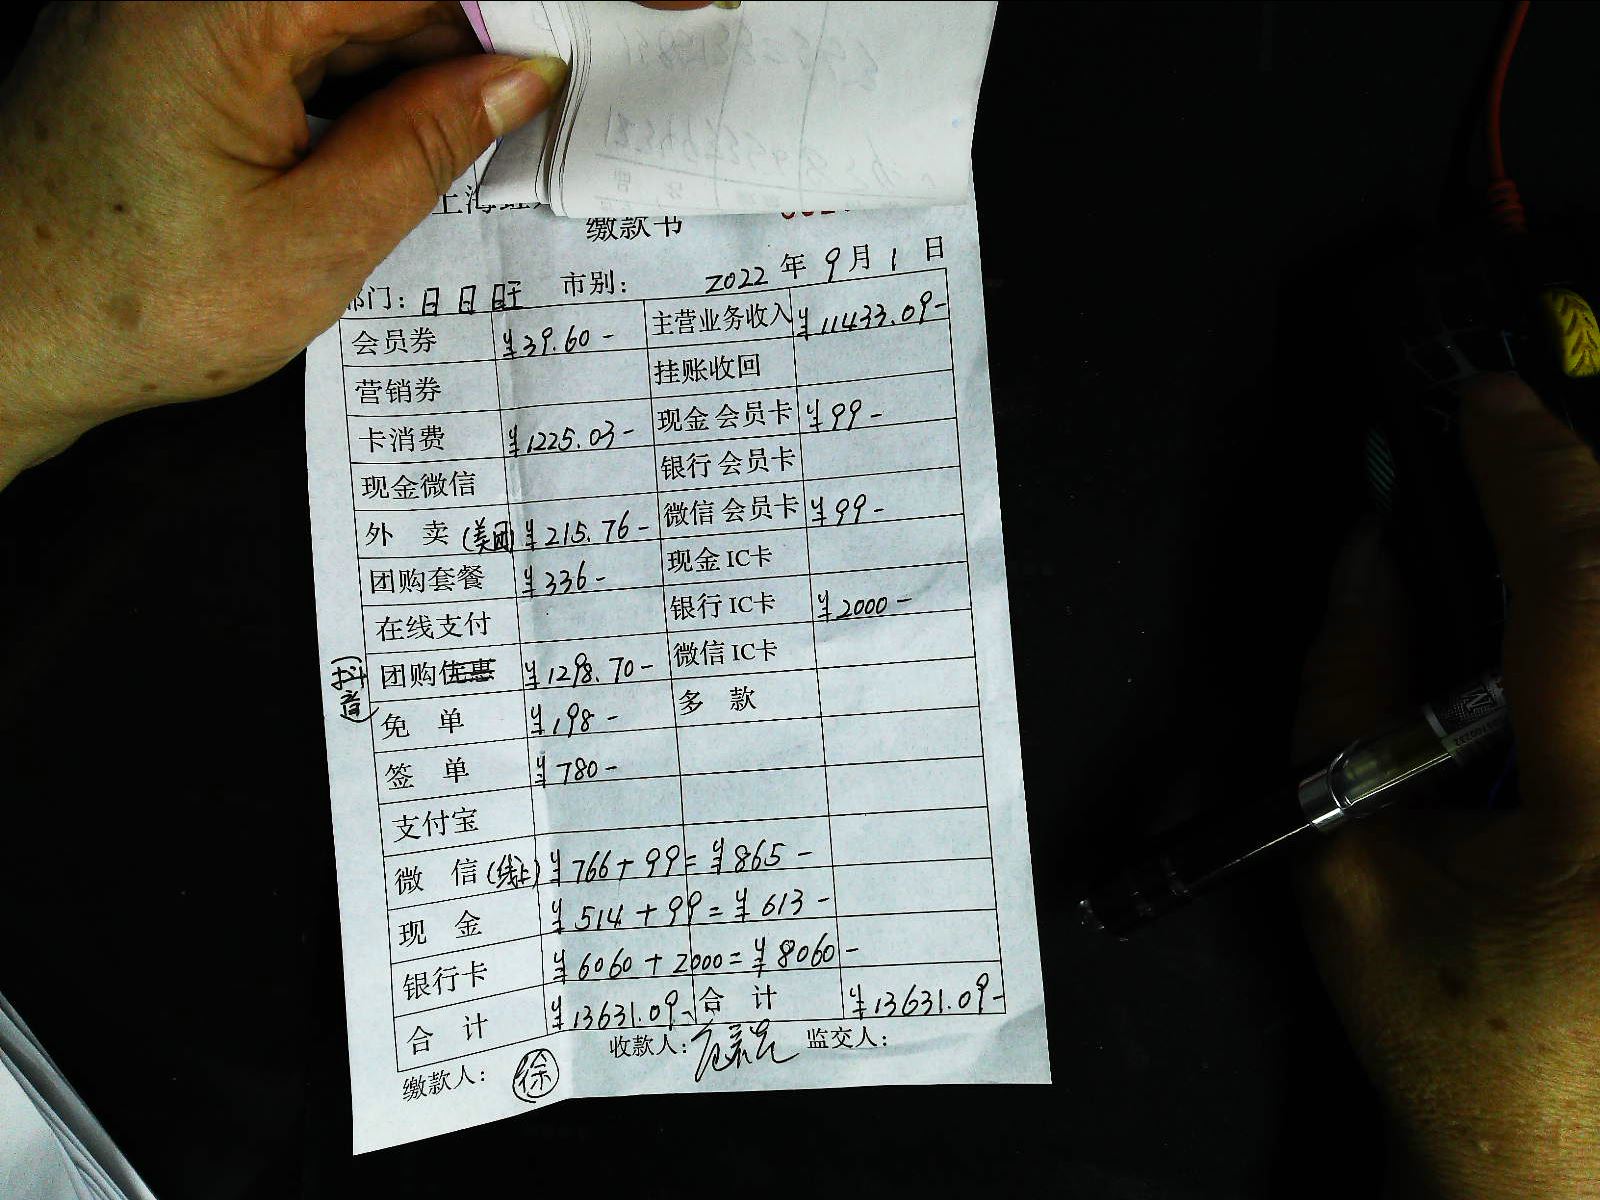 上海
缴款书
部门：日日旺 市别： 2022年9月1日
会员券 ¥39.60- 主营业务收入 ¥11433.09-
营销券 挂账收回
卡消费 ¥1225.03- 现金会员卡 ¥99-
现金微信 银行会员卡
外 卖(美团) ¥215.76- 微信会员卡 ¥99-
团购套餐 ¥336- 现金IC卡
在线支付 银行IC卡 ¥2000-
(抖音) 团购优惠 ¥1298.70- 微信IC卡
免 单 ¥198- 多 款
签 单 ¥780-
支付宝
微 信(线上) ¥766+99=¥865-
现 金 ¥514+99=¥613-
银行卡 ¥6060+2000=¥8060-
合 计 ¥13631.09- 合 计 ¥13631.09-
缴款人：徐 收款人： 监交人：